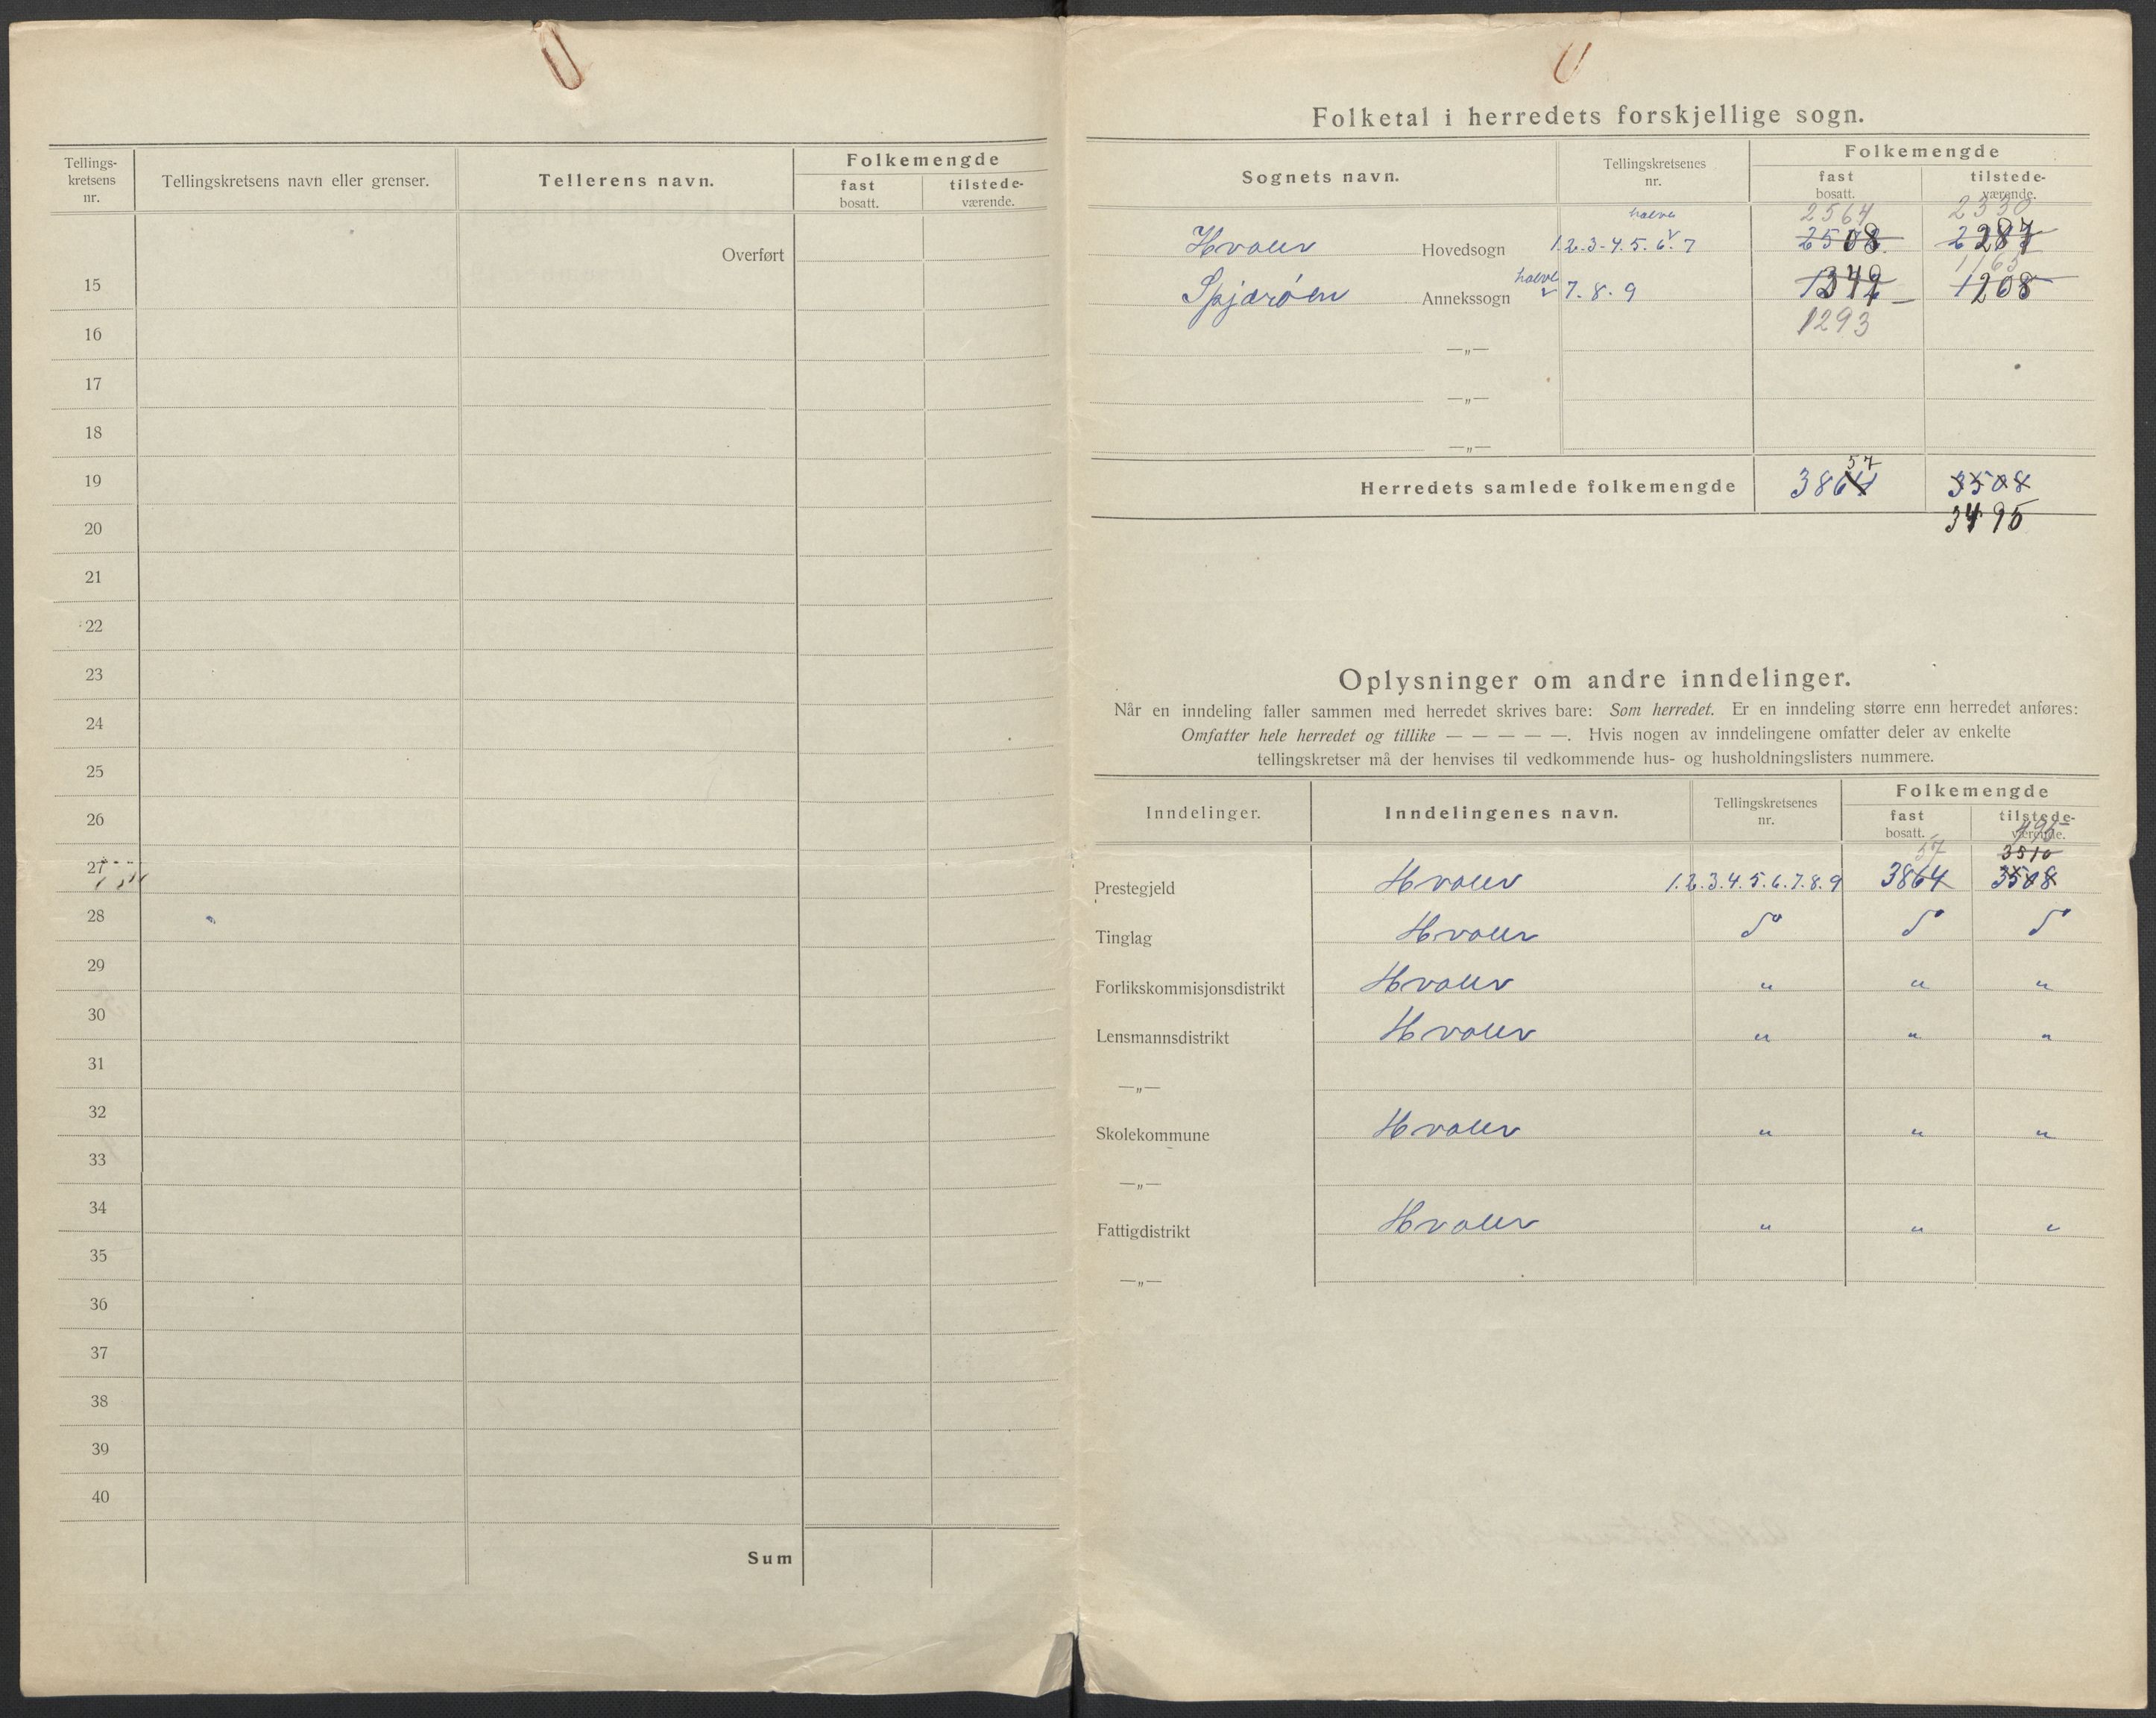 Tellings-
kretsens
nr.
Tellingskretsens navn eller grenser.
Tellerens navn.
Folkemengde
fast
bosatt.
tilstede-
værende.
Overført
15
16
17
18
19
20
21
22
23
24
25
26
27
28
29
30
31
32
33
34
35
36
37
38
39
40
Sum
Folketal i herredets forskjellige sogn.
Sognets navn.
Tellingskretsenes
nr.
Folkemengde
fast
bosatt.
tilstede-
værende.
halve
2564
2330
Hvaler Hovedsogn 1.2.3-4.5.6.7 2508 2287
1165
halve
Spjærøen Annekssogn 7.8.9 1349 1208
1293
—„—
—„—
—„—
57
Herredets samlede folkemengde 3864 3508
3495
Oplysninger om andre inndelinger.
Når en inndeling faller sammen med herredet skrives bare: Som herredet. Er en inndeling større enn herredet anføres:
Omfatter hele herredet og tillike — — — — —. Hvis nogen av inndelingene omfatter deler av enkelte
tellingskretser må der henvises til vedkommende hus- og husholdningslisters nummere.
Inndelinger.
Inndelingenes navn.
Tellingskretsenes
nr.
Folkemengde
fast
bosatt.
tilstede-
værende.
495
57 3510
Prestegjeld Hvaler 1.2.3.4.5.6.7.8.9 3864 3508
Tinglag Hvaler do do do
Forlikskommisjonsdistrikt Hvaler " " "
Lensmannsdistrikt Hvaler " " "
—„—
Skolekommune Hvaler " " "
—„—
Fattigdistrikt Hvaler " " "
—„—